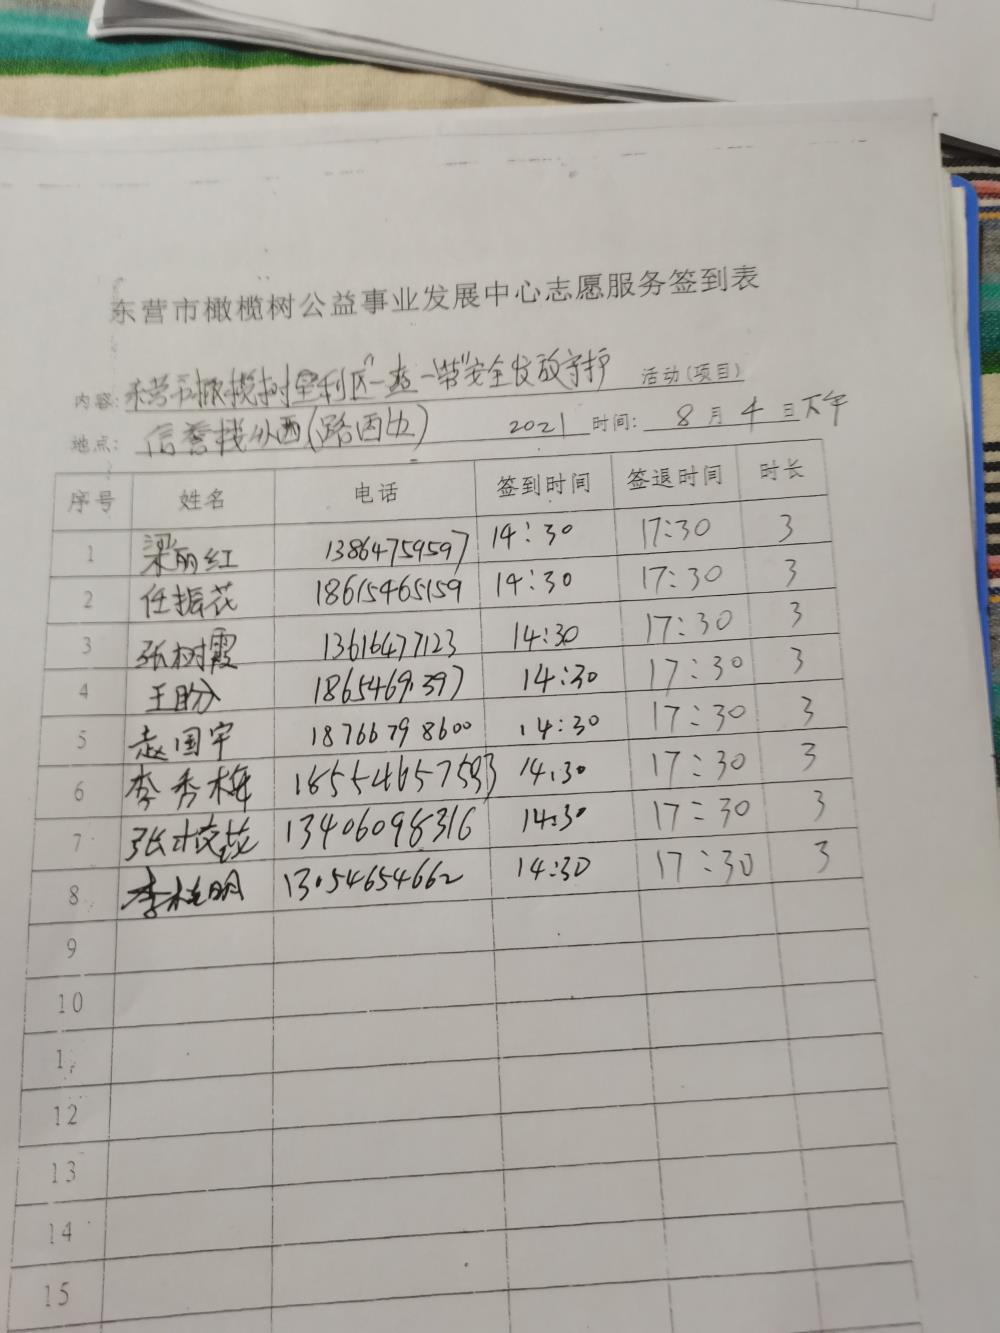 东营市橄榄树公益事业发展中心志愿服务签到表
内容: 东营市橄榄树垦利区"一盔一带"安全发放守护 活动(项目)
地点: 信誉楼 西(路西边) 2021 时间: 8月4日下午
序号 姓名 电话 签到时间 签退时间 时长
1 梁丽红 13864759597 14:30 17:30 3
2 任振花 18615465159 14:30 17:30 3
3 张树霞 13616477123 14:30 17:30 3
4 王盼 14:30 17:30 3
5 赵国宇 18766798600 14:30 17:30 3
6 李秀梅 14:30 17:30 3
7 张 13406098316 14:30 17:30 3
8 李桂明 13054654662 14:30 17:30 3
9
10
1
12
13
14
15